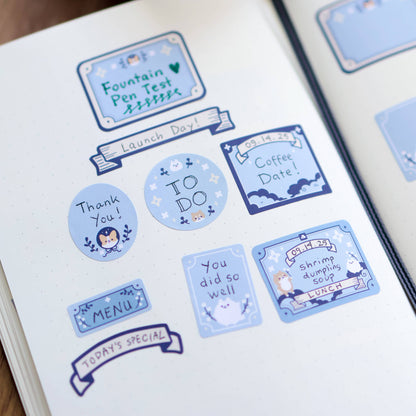 Fountain
Pen Test
Launch Day!
09.14.25
Coffee
Date!
Thank
You!
TO
DO
You
did so
well
09.14.25
shrimp
dumpling
soup
LUNCH
MENU
TODAY'S SPECIAL